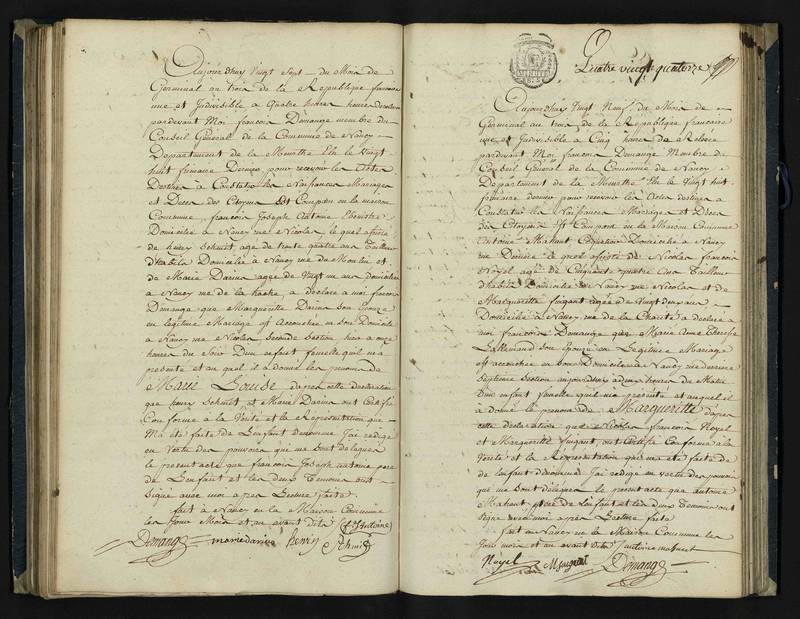 Aujourdhuy Vingt Sept du Mois de
Germinal an trois de la République francaise
une et Indivisible à Quatre heures
pardevant Moi francois Demange membre du
Conseil Général de la Commune de Nancy
Departement de la Meurthe Elu le Vingt
huit frimaire Dernier pour recevoir les Actes
Destinés a Constater les Naissances Mariages
et Deces des Citoyens Est Comparu en la maison
Commune francois Joseph Antoine Ebeniste
Domicilié a Nancy rue St Nicolas lequel assisté
de henry Schmit, agé de trente quatre ans Tailleur
dhabits Domicilié a Nancy rue du Moulin et
de Marie Darius agée de Vingt un ans domiciliée
a Nancy rue de la hache, a déclaré a moi francois
Demange que Marguerite Darius son Epouse
en légitime Mariage est Accouchée en son Domicile
a Nancy rue Nicolas seconde section hier a onze
heures du Soir Dun enfant femelle quil ma
presenté et au quel il a donné les prenoms de
Marie Louise dapres cette declaration
que henry Schmit et Marie Darius ont Certifié
Conforme à la Vérité et la Représentation que
Ma été faite de Lenfant denommé Jai redigé
en vertu des pouvoirs qui me sont delegués
le present acte que francois Joseph antoine pere
de Lenfant et les deux Temoins ont
signé avec moi apres Lecture faite
fait a Nancy en la Maison Commune
les Jour Mois et an avant dits f. J. Antoine
Demange marie darius henry Schmit
Quatre vingt quatorze
Aujourdhuy Vingt Neuf du Mois de
Germinal an trois de la République francaise
une et Indivisible à Cinq heures de Relevée
pardevant Moi francois Demange Membre du
Conseil Général de la Commune de Nancy
Departement de la Meurthe Elu le Vingt huit
frimaire dernier pour recevoir les Actes destinés a
Constater les Naissances Mariages et Deces
des Citoyens Est Comparu en la Maison Commune
Antoine Mahuet Domicilié a Nancy
rue lequel assisté de Nicolas francois
Noyel agé de Cinquante quatre ans Tailleur
dhabits Domicilié a Nancy rue Nicolas et de
Marguerite fuigant agée de Vingt deux ans
Domiciliée a Nancy rue de la Charité a déclaré a
moi francois Demange que Marie Anne Therese
Lallemand son Epouse en Legitime Mariage
est accouchée en son Domicile a Nancy rue derriere
Septieme section aujourdhuy a deux heures du Matin
Dun enfant femelle quil ma presenté et auquel il
a donné le prenom de Marguerite dapres
cette declaration que Nicolas francois Noyel
et Marguerite fuigant, ont Certifié Conforme a la
Verité et la Représentation qui ma été faite de
de Lenfant denommé Jai redigé en vertu des pouvoirs
qui me sont délégués le present acte que antoine
Mahuet, pere de Lenfant et les deux Temoins ont
signé avec moi apres Lecture faite
fait a Nancy en la Maison Commune les
Jour mois et an avant dits Antoine mahuet
Noyel M fuigant Demange